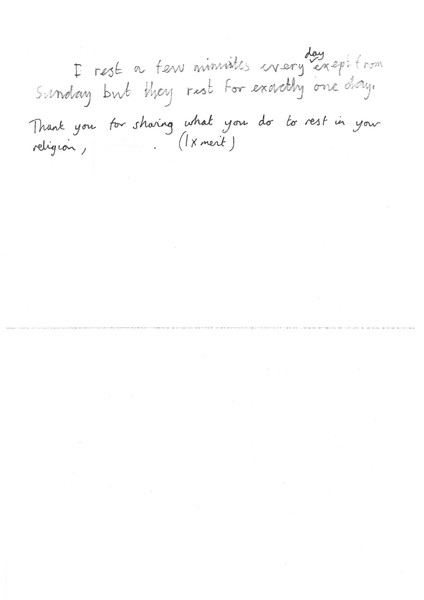 I rest a few minuites every day exept from
Sunday but they rest for exactly one day.
Thank you for sharing what you do to rest in your
religion, . (1x merit)